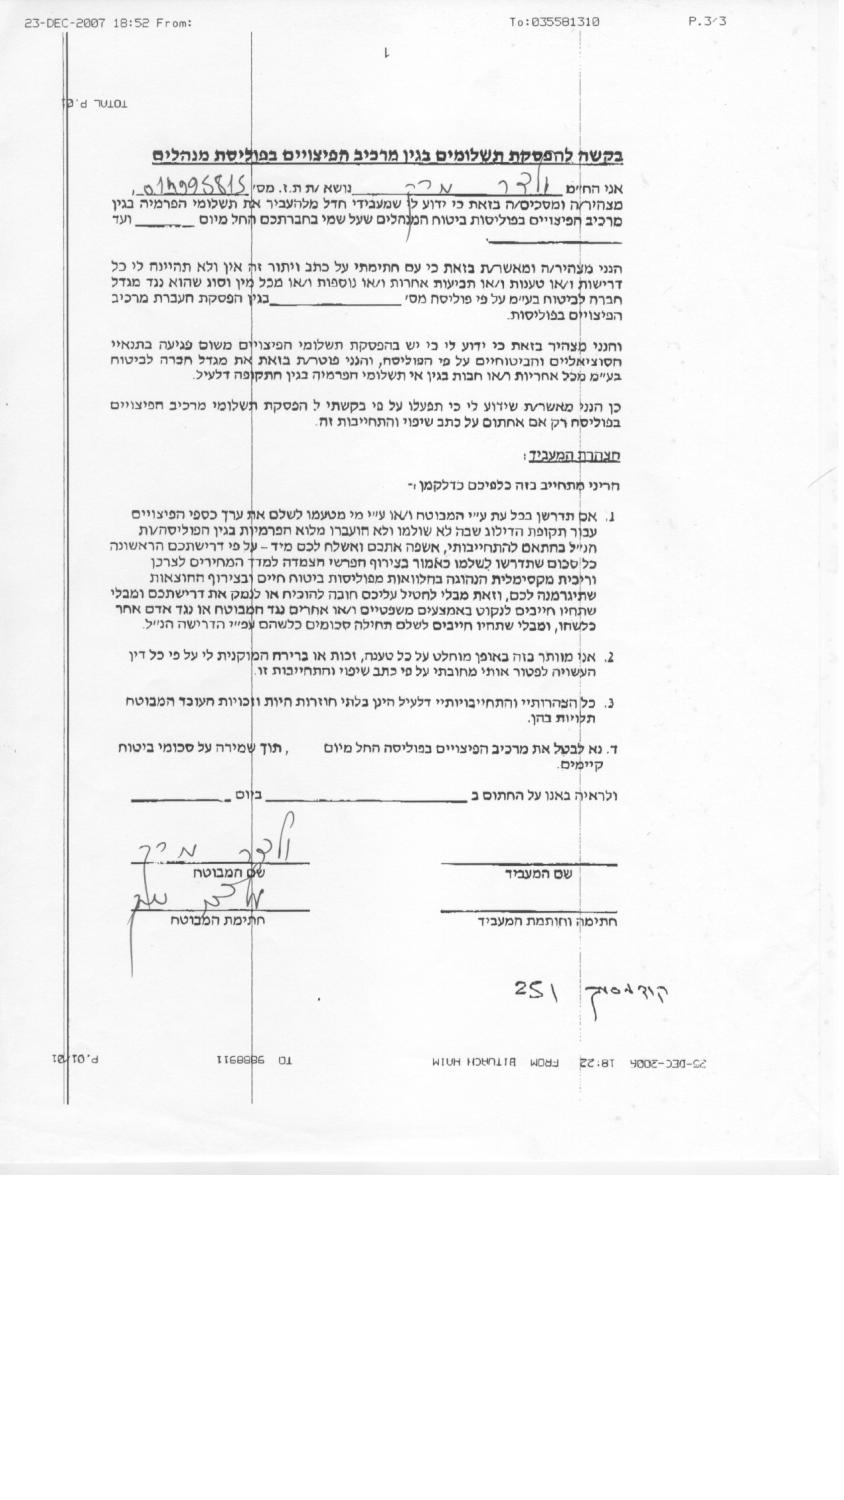 23-DEC-2007 18:52 From: To:035581310 P.3/3
1
TOTAL P.01
בקשה להפסקת תשלומים בגין מרכיב הפיצויים בפוליסת מנהלים
אני הח״מ ולדר מרק נושא /ת ת.ז. מס׳
מצהיר/ה ומסכים/ה בזאת כי ידוע לי שמעבידי חדל מלהעביר את תשלומי הפרמיה בגין
מרכיב הפיצויים בפוליסות ביטוח המנהלים שעל שמי בחברתכם החל מיום ועד
הנני מצהיר/ה ומאשר/ת בזאת כי עם חתימתי על כתב ויתור זה אין ולא תהיינה לי כל
דרישות ו/או טענות ו/או תביעות אחרות ו/או נוספות ו/או מכל מין וסוג שהוא נגד מגדל
חברה לביטוח בע״מ על פי פוליסה מס׳ בגין הפסקת העברת מרכיב
הפיצויים בפוליסות.
והנני מצהיר בזאת כי ידוע לי כי יש בהפסקת תשלומי הפיצויים משום פגיעה בתנאיי
הסוציאליים והביטוחיים על פי הפוליסה, והנני פוטר/ת בזאת את מגדל חברה לביטוח
בע״מ מכל אחריות ו/או חבות בגין אי תשלומי הפרמיה בגין התקופה דלעיל.
כן הנני מאשר/ת שידוע לי כי תפעלו על פי בקשתי ל הפסקת תשלומי מרכיב הפיצויים
בפוליסה רק אם אחתום על כתב שיפוי והתחייבות זה.
הצהרת המעביד :
הריני מתחייב בזה כלפיכם כדלקמן :-
1. אם תדרשן בכל עת ע״י המבוטח ו/או ע״י מי מטעמו לשלם את ערך כספי הפיצויים
עבור תקופת הדילוג שבה לא שולמו ולא הועברו מלוא הפרמיות בגין הפוליסה/ות
הנ״ל בהתאם להתחייבותי, אשפה אתכם ואשלח לכם מיד – על פי דרישתכם הראשונה
כל סכום שתדרשו לשלמו כאמור בצירוף הפרשי הצמדה למדד המחירים לצרכן
וריבית מקסימלית הנהוגה בהלוואות מפוליסות ביטוח חיים ובצירוף ההוצאות
שתיגרמנה לכם, וזאת מבלי להטיל עליכם חובה להוכיח או לנמק את דרישתכם ומבלי
שתהיו חייבים לנקוט באמצעים משפטיים ו/או אחרים נגד המבוטח או נגד אדם אחר
כלשהו, ומבלי שתהיו חייבים לשלם תחילה סכומים כלשהם עפ״י הדרישה הנ״ל.
2. אני מוותר בזה באופן מוחלט על כל טענה, זכות או ברירה המוקנית לי על פי כל דין
העשויה לפטור אותי מחובתי על פי כתב שיפוי והתחייבות זו.
3. כל הצהרותיי והתחייבויותיי דלעיל הינן בלתי חוזרות היות וזכויות העובד המבוטח
תלויות בהן.
ד. נא לבטל את מרכיב הפיצויים בפוליסה החל מיום , תוך שמירה על סכומי ביטוח
קיימים.
ולראיה באנו על החתום ב ביום
ולדר מרק
שם המעביד שם המבוטח
חתימה וחותמת המעביד חתימת המבוטח
קוד מסמך 251
25-DEC-2006 18:22 FROM BITUACH HAIM TO 9688911 P.01/01